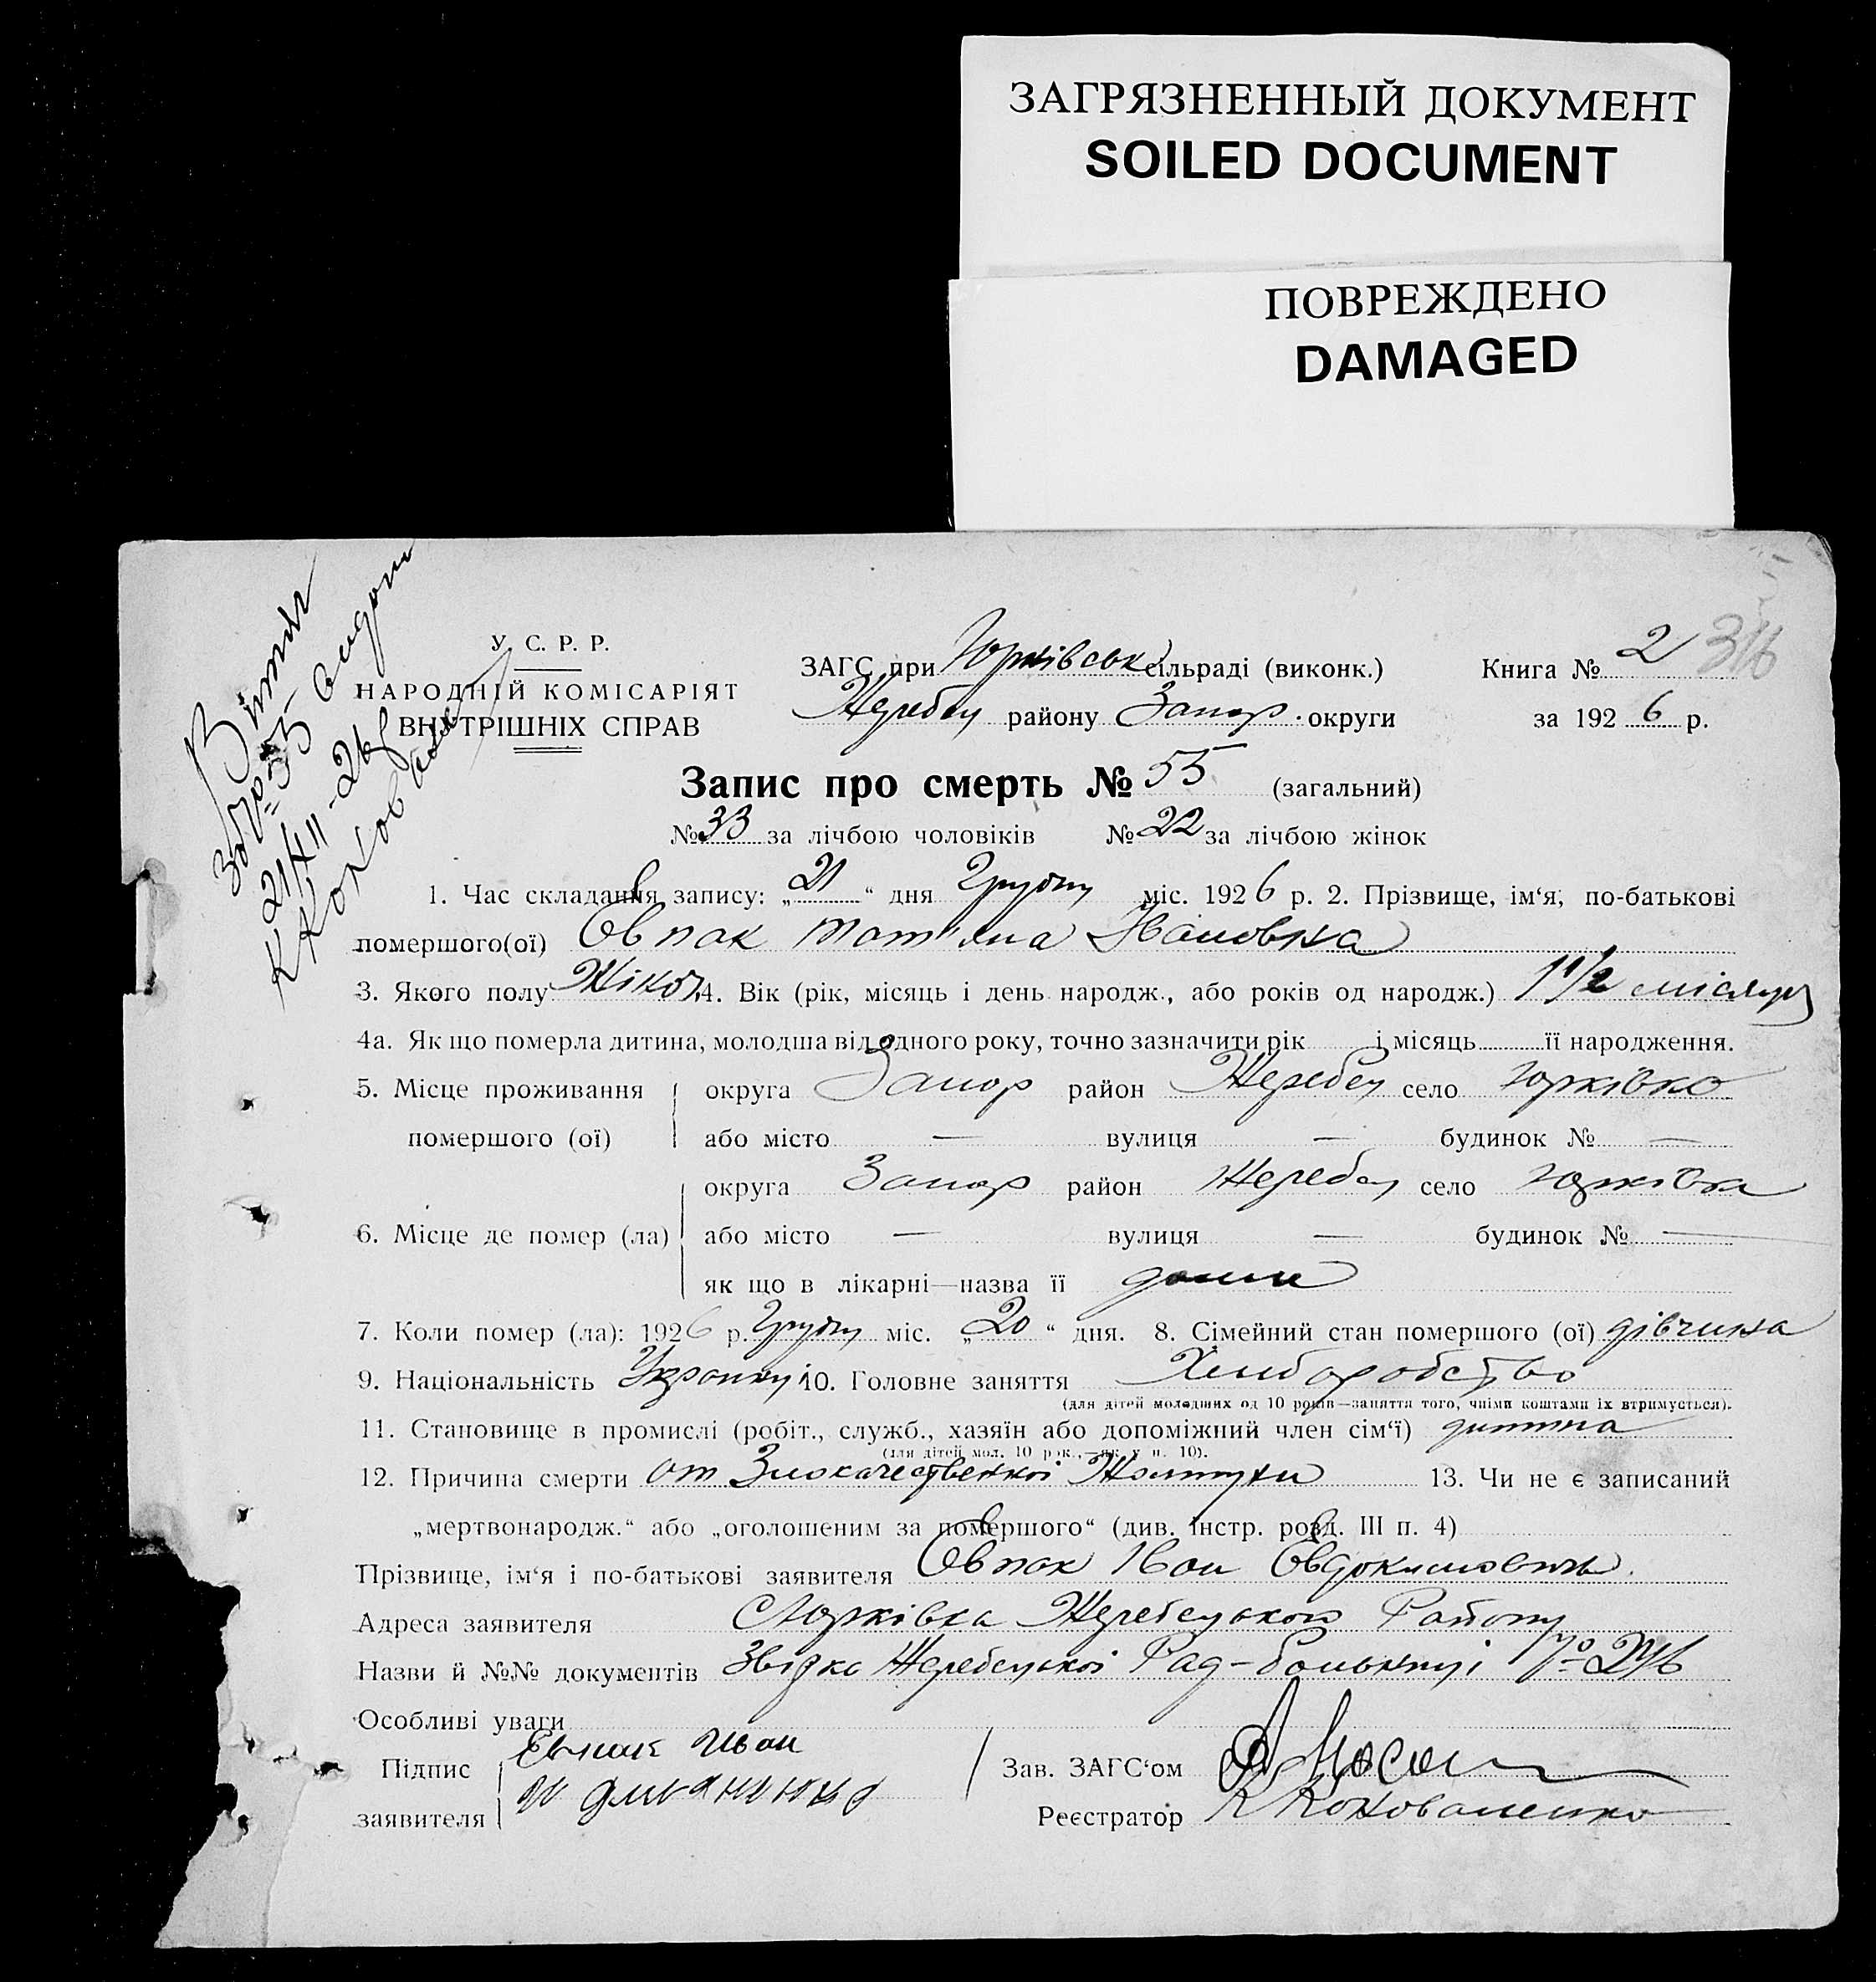 ЗАГРЯЗНЕННЫЙ ДОКУМЕНТ
SOILED DOCUMENT
ПОВРЕЖДЕНО
DAMAGED
№ 55
21/XII-26
У. С. Р. Р.
НАРОДНІЙ КОМІСАРІЯТ
ВНУТРІШНІХ СПРАВ
ЗАГС при Юрківськ сільраді (виконк.)
Жеребец району Запор. округи
Книга № 2 316
за 1926 р.
Запис про смерть № 55 (загальний)
№ 33 за лічбою чоловіків № 22 за лічбою жінок
1. Час складання запису: „21“ дня Грудну міс. 1926 р. 2. Прізвище, ім‘я, по-батькові
помершого(ої) Овпак Тат'яна Івановна
3. Якого полу Жіноч. 4. Вік (рік, місяць і день народж., або років од народж.) 1 1/2 місяця
4а. Як що померла дитина, молодша від одного року, точно зазначити рік і місяць її народження.
5. Місце проживання помершого (ої)
округа Запор район Жеребец село Юрківка
або місто — вулиця — будинок № —
6. Місце де помер (ла)
округа Запор район Жеребец село Юрківка
або місто — вулиця — будинок № —
як що в лікарні—назва її дома
7. Коли помер (ла): 1926 р. Грудну міс. „20“ дня. 8. Сімейний стан помершого (ої) дівчина
9. Національність Украинц 10. Головне заняття Хлиборобство
(для дітей молодших од 10 років—заняття того, чиїми коштами їх втримується).
11. Становище в промислі (робіт., служб., хазяїн або допоміжний член сім‘ї) дитина
(для дітей мол. 10 рок.,—як у п. 10).
12. Причина смерти от Злокачественної Жолтухи 13. Чи не є записаний
„мертвонародж.“ або „оголошеним за помершого“ (див. інстр. розд. III п. 4)
Прізвище, ім‘я і по-батькові заявителя Овпак Іван Овдокимович.
Адреса заявителя с Юрківка Жеребецького Району
Назви й №№ документів Звідка Жеребецької Рад-больниці № 276
Особливі уваги
Підпис заявителя Евпак Иван
Зав. ЗАГС‘ом
Реєстратор К Коноваленко